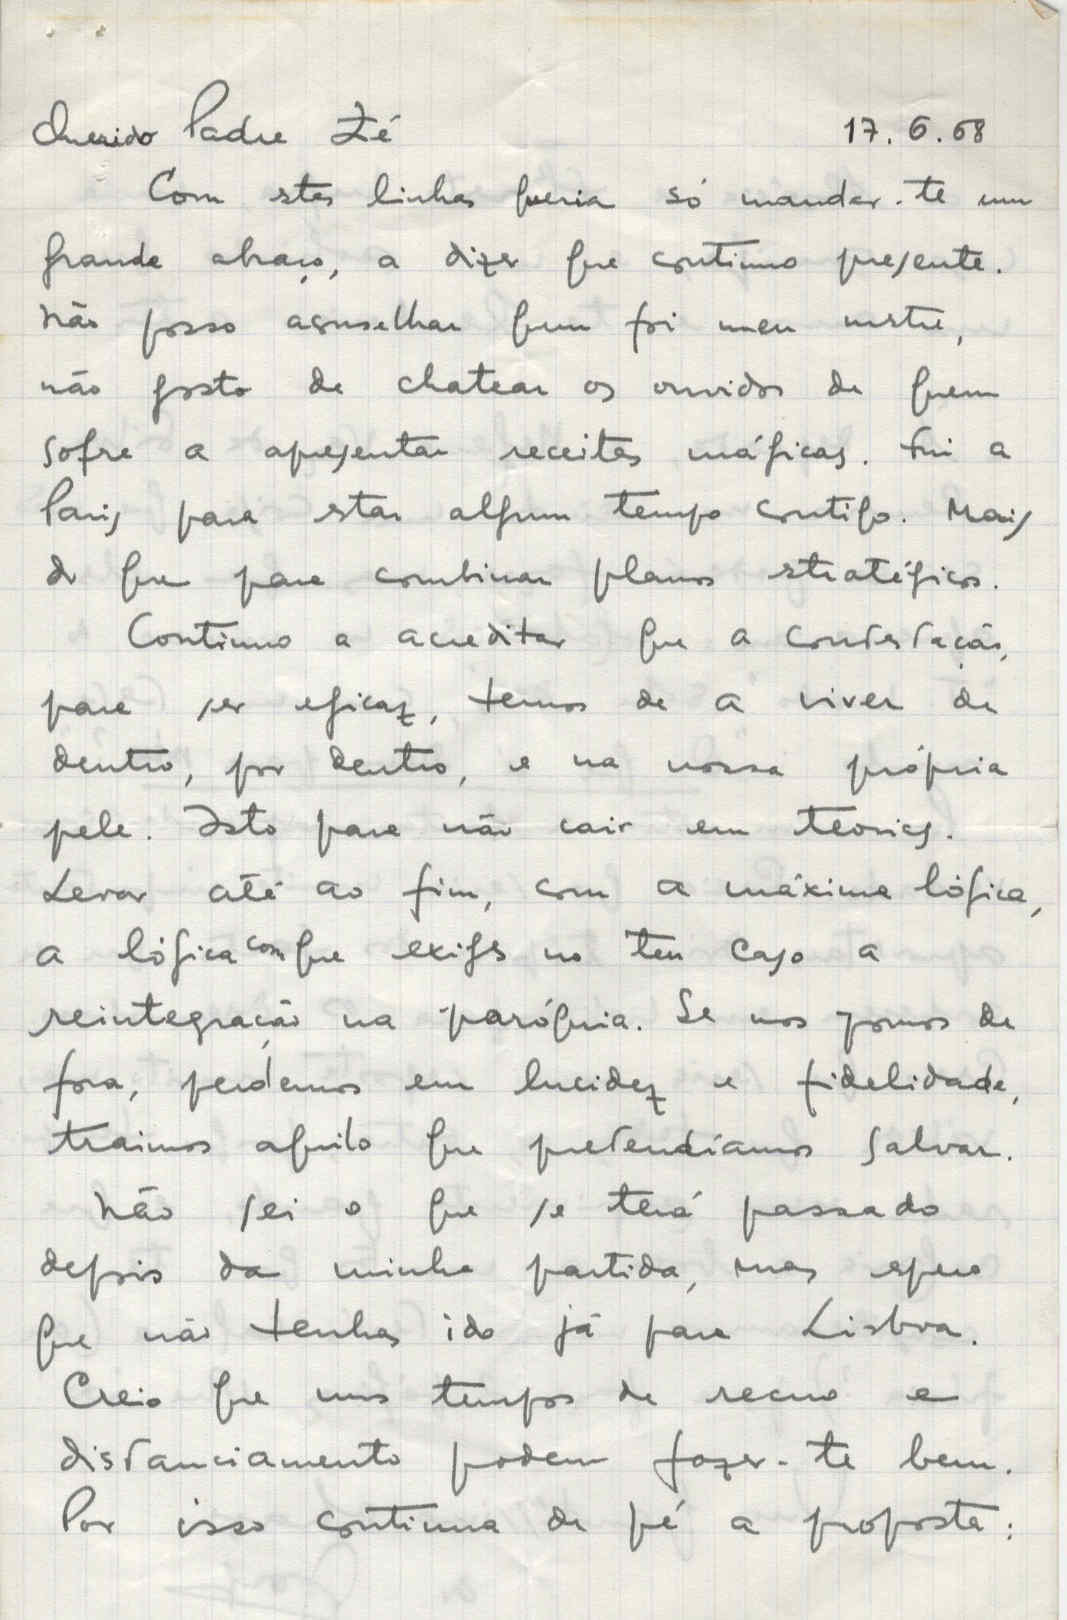 Querido Padre Zé
17.6.68
Com estas linhas queria só mandar-te um
grande abraço, a dizer que continuo presente.
Não posso aconselhar quem foi meu mestre,
não gosto de chatear os ouvidos de quem
sofre a apresentar receitas mágicas. Fui a
Paris para estar algum tempo contigo. Mais
do que para combinar planos estratégicos.
Continuo a acreditar que a contestação,
para ser eficaz, temos de a viver de
dentro, por dentro, e na nossa própria
pele. Isto para não cair em teorias.
Levar até ao fim, com a máxima lógica,
a lógica com que exiges no teu caso a
reintegração na paróquia. Se nos pomos de
fora, perdemos em lucidez e fidelidade,
traimos aquilo que pretendíamos salvar.
Não sei o que se terá passado
depois da minha partida, mas espero
que não tenhas ido já para Lisboa.
Creio que uns tempos de recuo e
distanciamento podem fazer-te bem.
Por isso continua de pé a proposta: